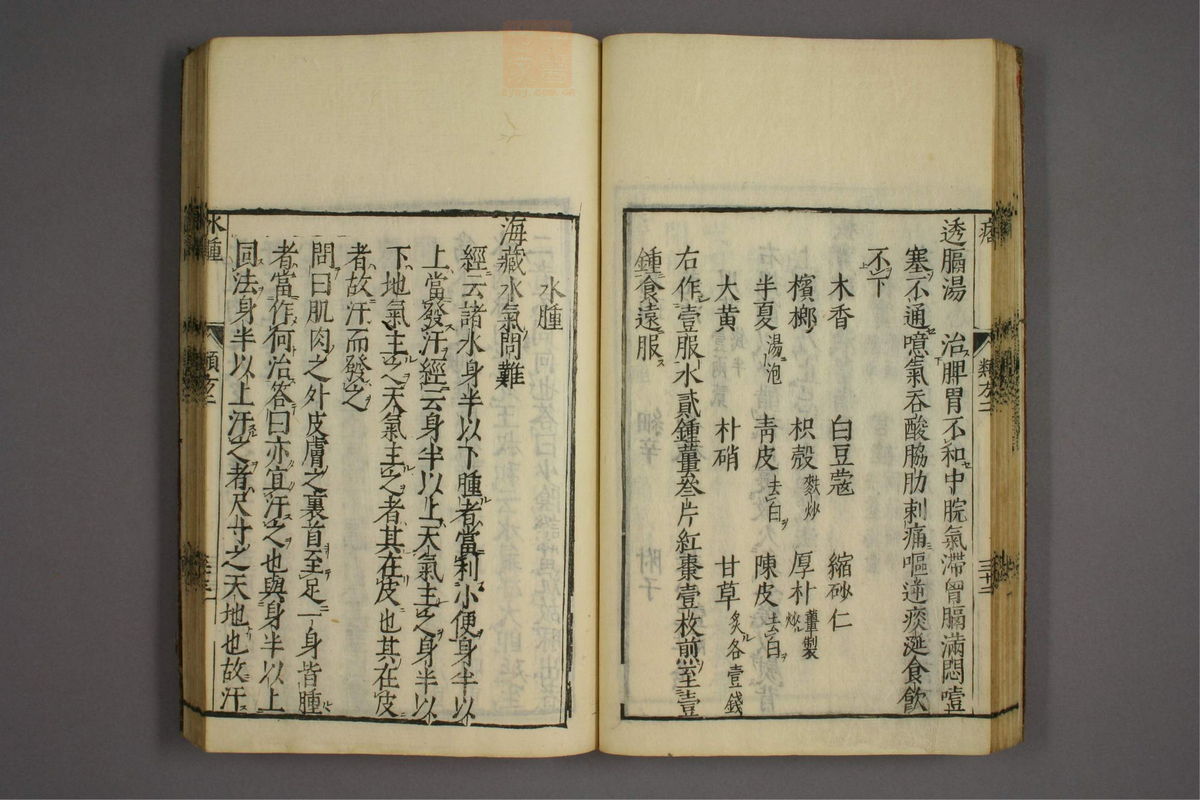 透膈湯 治脾胃不和中脘氣滯胷膈滿悶噎
塞不通噫氣吞酸脇肋刺痛嘔逆痰涎食飲
不下
木香 白豆蔻 縮砂仁
檳榔 枳殼麩炒 厚朴薑製炒
半夏湯泡 青皮去白 陳皮去白
大黄 朴硝 甘草炙各壹錢
右作壹服水貳鍾薑叄片紅棗壹枚煎至壹
鍾食遠服
類方二
水腫
海藏水氣問難
經云諸水身半以下腫者當利小便身半以
上當發汗經云身半以上天氣主之身半以
下地氣主之天氣主之者其在皮也其在皮
者故汗而發之
問曰肌肉之外皮膚之裏首至足一身皆腫
者當作何治答曰亦宜汗之也與身半以上
同法身半以上汗之者尺寸之天地也故汗
水腫
類方二